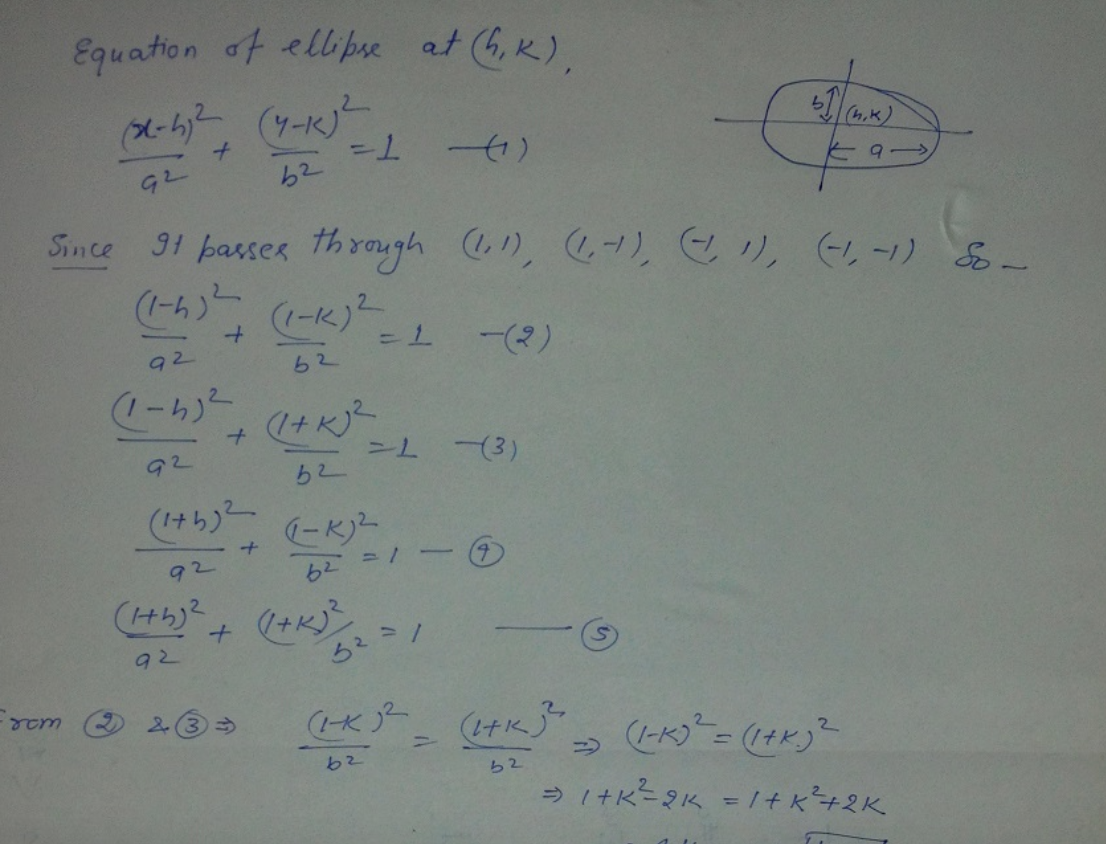 Equation of ellipse at (h, k),
(x-h)²/a² + (y-k)²/b² = 1 —(1)
b (h,k)
a
Since It passes through (1,1), (1,-1), (-1, 1), (-1,-1) So -
(1-h)²/a² + (1-k)²/b² = 1 -(2)
(1-h)²/a² + (1+k)²/b² = 1 -(3)
(1+h)²/a² + (1-k)²/b² = 1 — (4)
(1+h)²/a² + (1+k)²/b² = 1 — (5)
From (2) & (3) ⇒ (1-k)²/b² = (1+k)²/b² ⇒ (1-k)² = (1+k)²
⇒ 1+k²-2k = 1+k²+2k